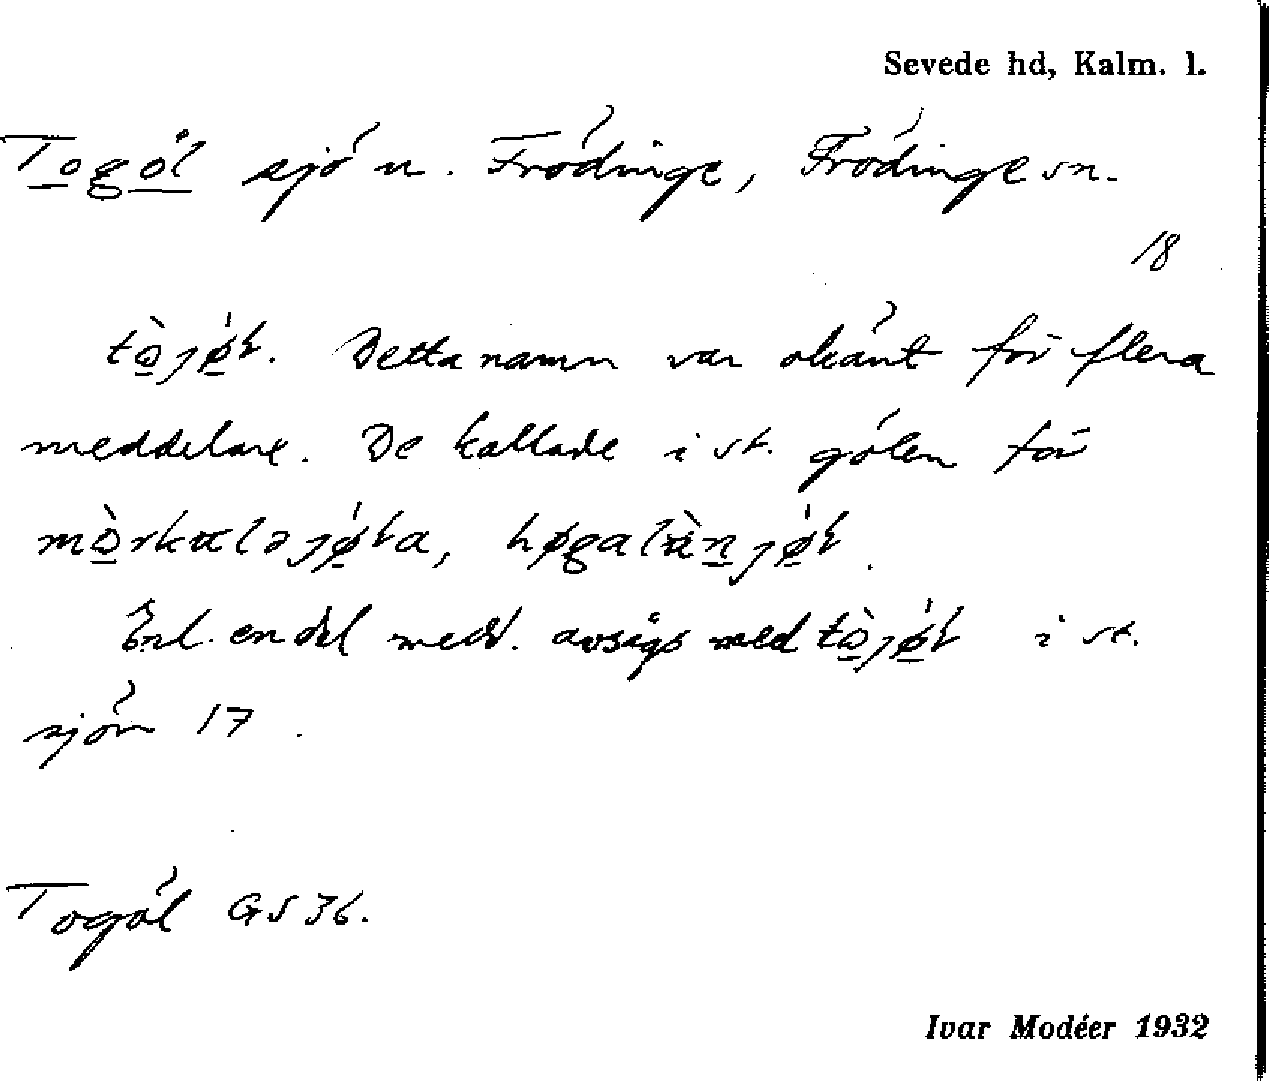 Sevede hd, Kalm. l.
Togöl sjö n. Frödinge, Frödinge sn.
18
tò̱jǿ̱ɫ. Detta namn var okänt för flera
meddelare. De kallade i st. gölen för
mò̱rkaləjǿ̱ɫa, høgalàṉjǿ̱ɫ.
Enl. en del medd. avsågs med tò̱jǿ̱ɫ i st.
sjön 17.
Togöl GS 36.
Ivar Modéer 1932